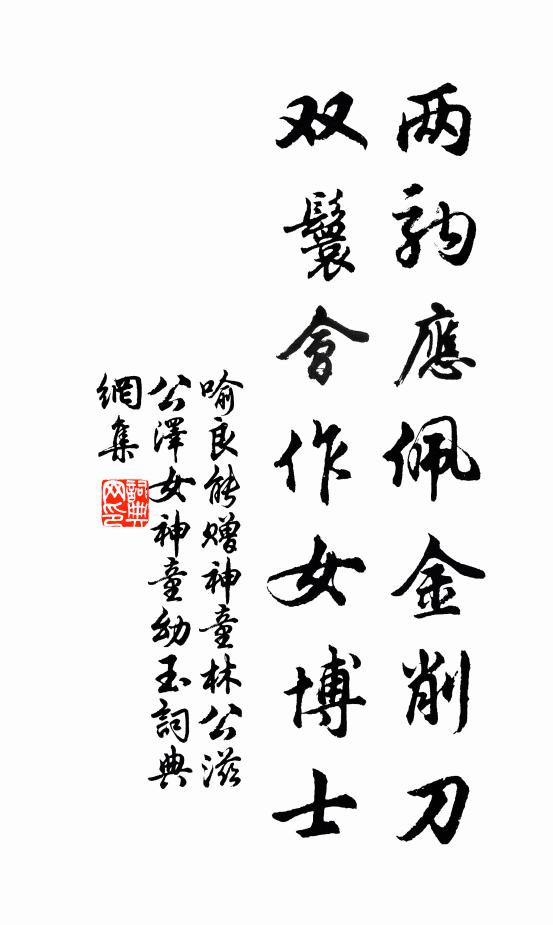 两駒應佩金削刀
双鬟會作女博士
喻良能赠神童林公滋
公澤女神童幼玉詞典
網集
詞典
网印